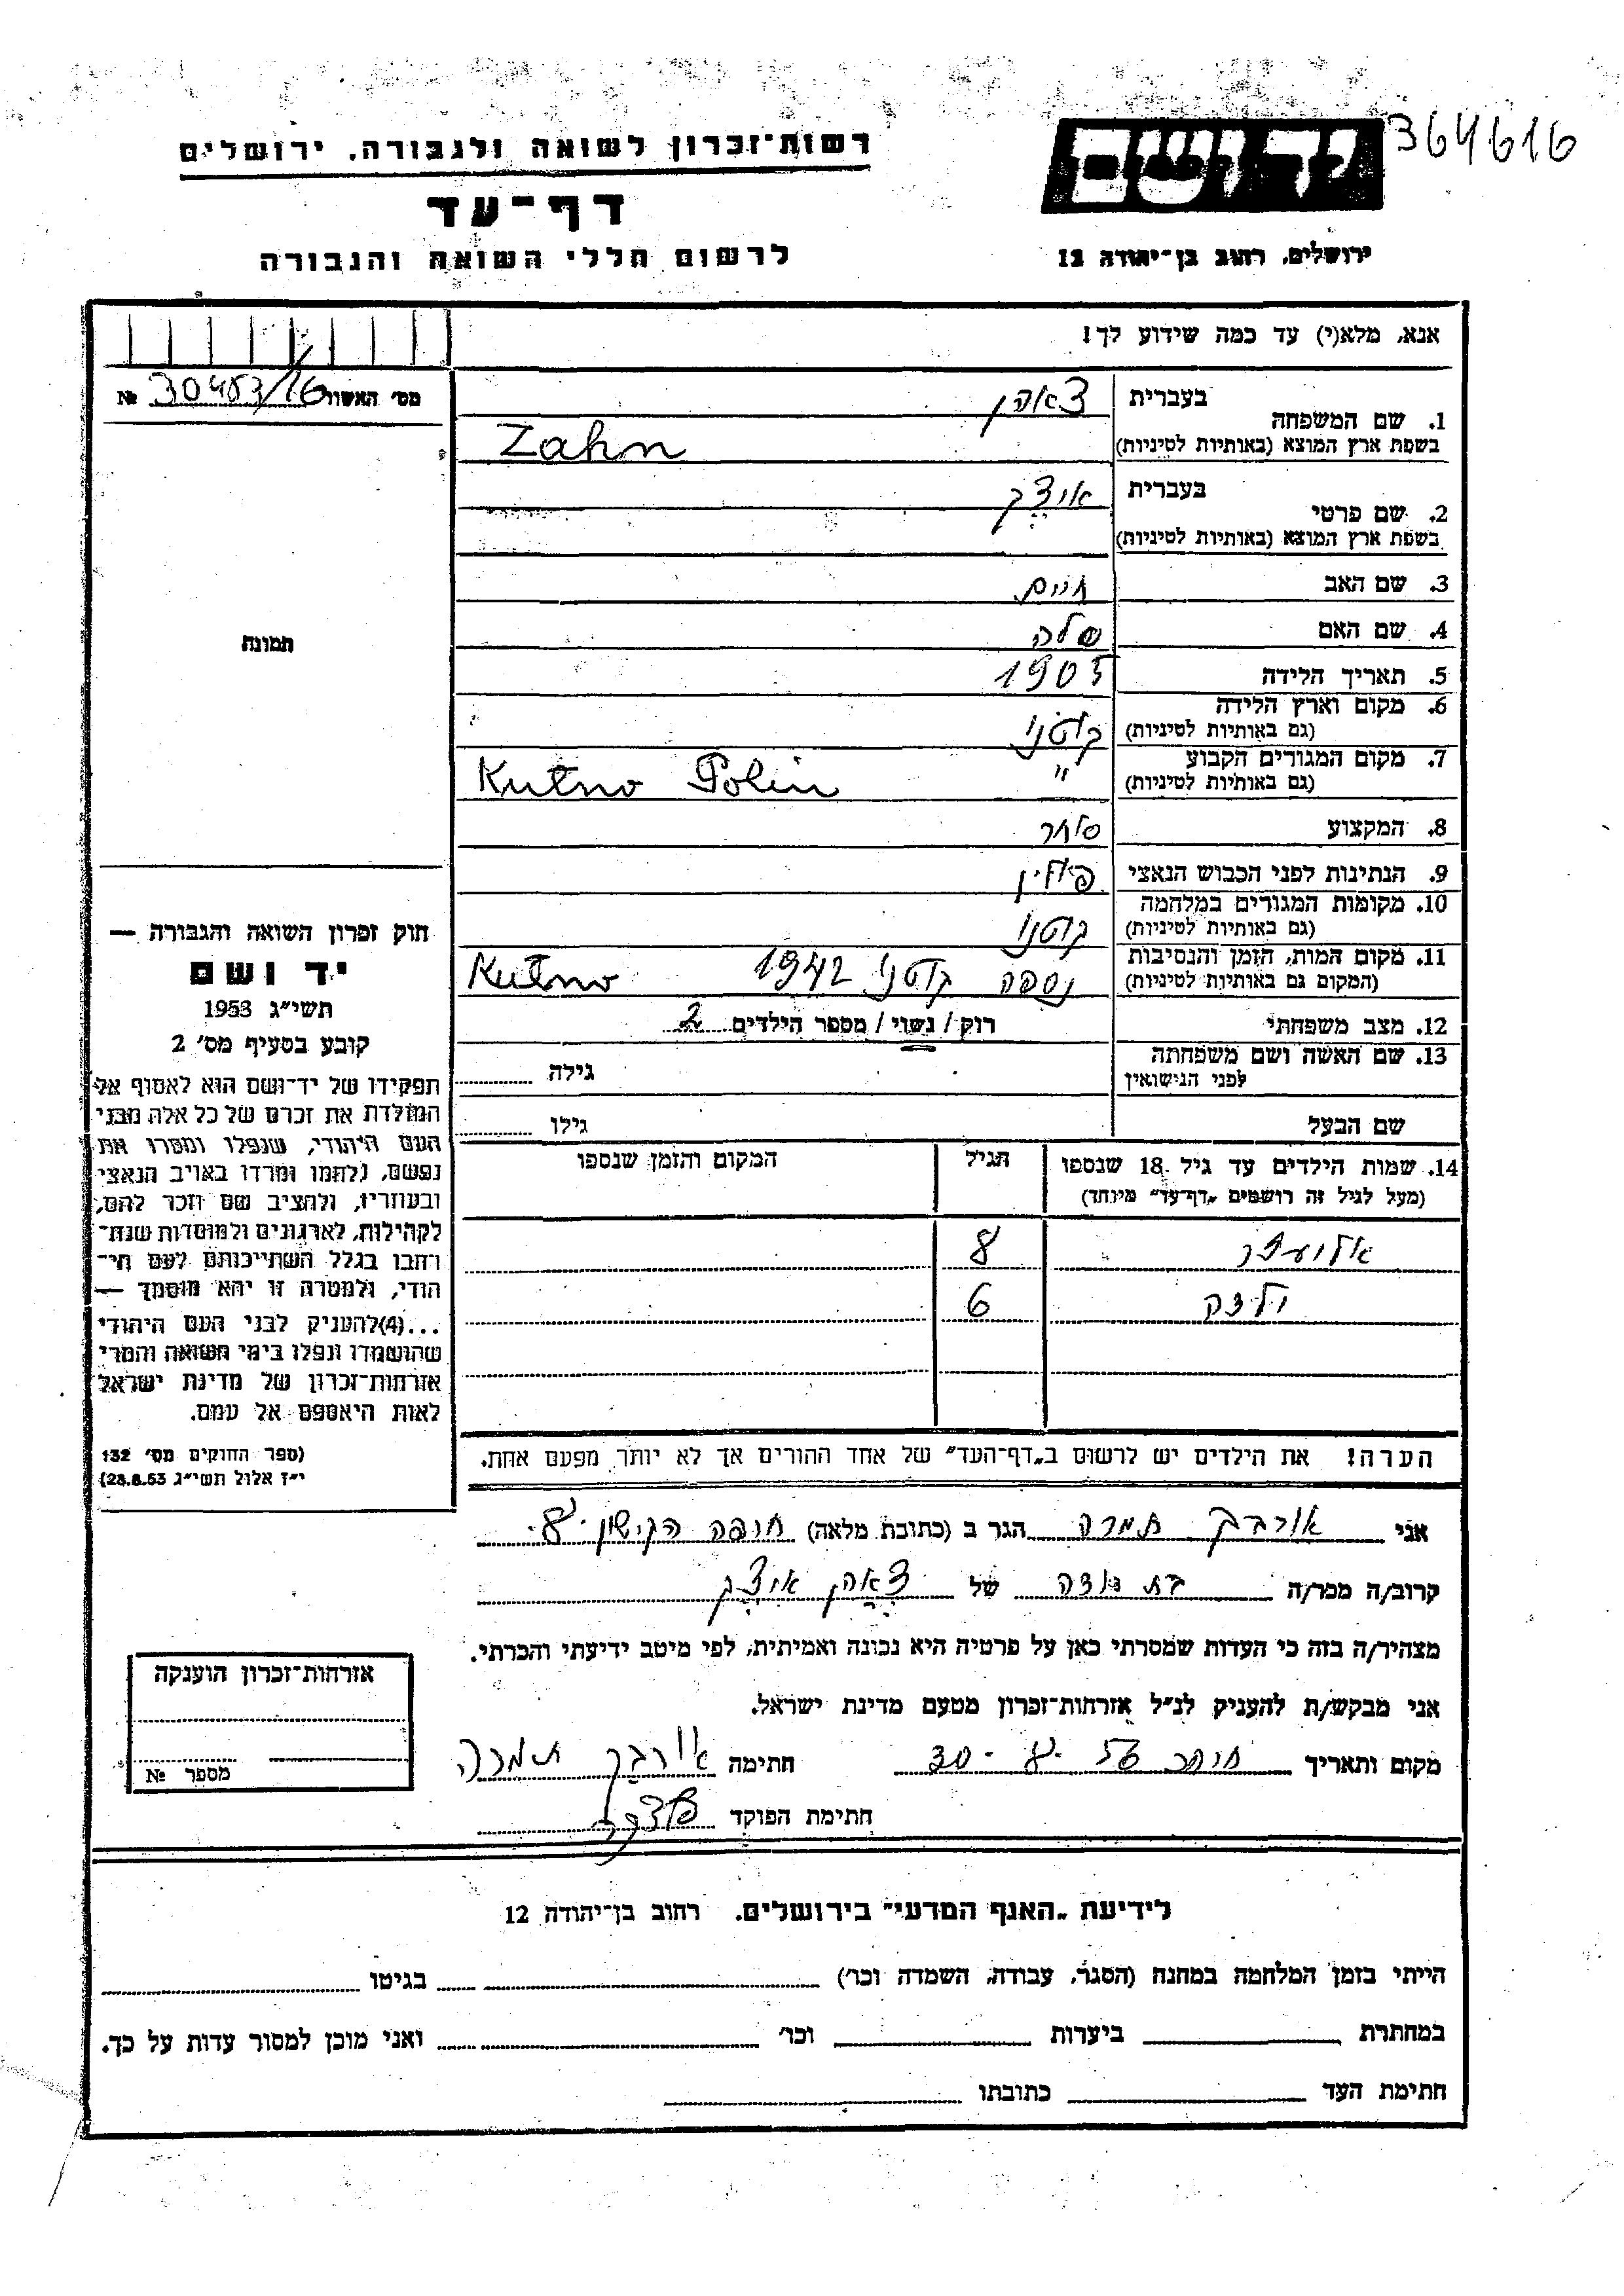 364616
יד ושם
רשות־זכרון לשואה ולגבורה, ירושלים
דף־עד
לרשום חללי השואה והגבורה
ירושלים, רחוב בן־יהודה 12
אנא, מלא(י) עד כמה שידוע לך!
מס׳ האשור 30453/16 №
תמונה
1. שם המשפחה
בעברית צאהן
בשפת ארץ המוצא (באותיות לטיניות) Zahn
2. שם פרטי
בעברית איצק
בשפת ארץ המוצא (באותיות לטיניות)
3. שם האב חיים
4. שם האם
5. תאריך הלידה 1905
6. מקום וארץ הלידה קוטנו
(גם באותיות לטיניות)
7. מקום המגורים הקבוע "
(גם באותיות לטיניות) Kutno Polin
8. המקצוע סוחר
9. הנתינות לפני הכבוש הנאצי פולין
10. מקומות המגורים במלחמה
(גם באותיות לטיניות) קוטנו
11. מקום המות, הזמן והנסיבות
(המקום גם באותיות לטיניות) נספה קוטנו 1942 Kutno
12. מצב משפחתי רוק / נשוי / מספר הילדים 2
13. שם האשה ושם משפחתה
לפני הנישואין גילה
שם הבעל גילו
14. שמות הילדים עד גיל 18 שנספו הגיל המקום והזמן שנספו
(מעל לגיל זה רושמים „דף־עד” מיוחד)
8
6
הערה! את הילדים יש לרשום ב„דף־העד” של אחד ההורים אך לא יותר מפעם אחת.
חוק זכרון השואה והגבורה —
יד ושם
תשי״ג 1953
קובע בסעיף מס׳ 2
תפקידו של יד־ושם הוא לאסוף אל
המולדת את זכרם של כל אלה מבני
העם היהודי, שנפלו ומסרו את
נפשם, נלחמו ומרדו באויב הנאצי
ובעוזריו, ולהציב שם וזכר להם,
לקהילות, לארגונים ולמוסדות שנח־
רבו בגלל השתייכותם לעם הי־
הודי, ולמטרה זו יהא מוסמך —
...(4)להעניק לבני העם היהודי
שהושמדו ונפלו בימי השואה והמרי
אזרחות־זכרון של מדינת ישראל
לאות היאספם אל עמם.
(ספר החוקים מס׳ 132
י״ז אלול תשי״ג 28.8.53)
אני אורבך תמרה הגר ב (כתובת מלאה) חיפה הקישון 8.
קרוב/ה מכר/ה בת דודה של צאהן איצק
מצהיר/ה בזה כי העדות שמסרתי כאן על פרטיה היא נכונה ואמיתית, לפי מיטב ידיעתי והכרתי.
אני מבקש/ת להעניק לנ״ל אזרחות־זכרון מטעם מדינת ישראל.
מקום ותאריך חיפה 30-8-56 חתימה אורבך תמרה
חתימת הפוקד
אזרחות־זכרון הוענקה
מספר №
לידיעת „האגף המדעי” בירושלים, רחוב בן־יהודה 12
הייתי בזמן המלחמה במחנה (הסגר, עבודה, השמדה וכו׳) בגיטו
במחתרת ביערות וכו׳ ואני מוכן למסור עדות על כך.
חתימת העד כתובתו